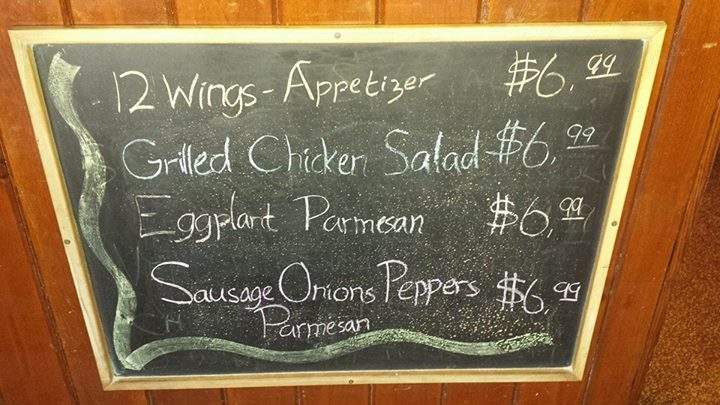 12 Wings - Appetizer $6.99
Grilled Chicken Salad - $6.99
Eggplant Parmesan $6.99
Sausage Onions Peppers $6.99
Parmesan